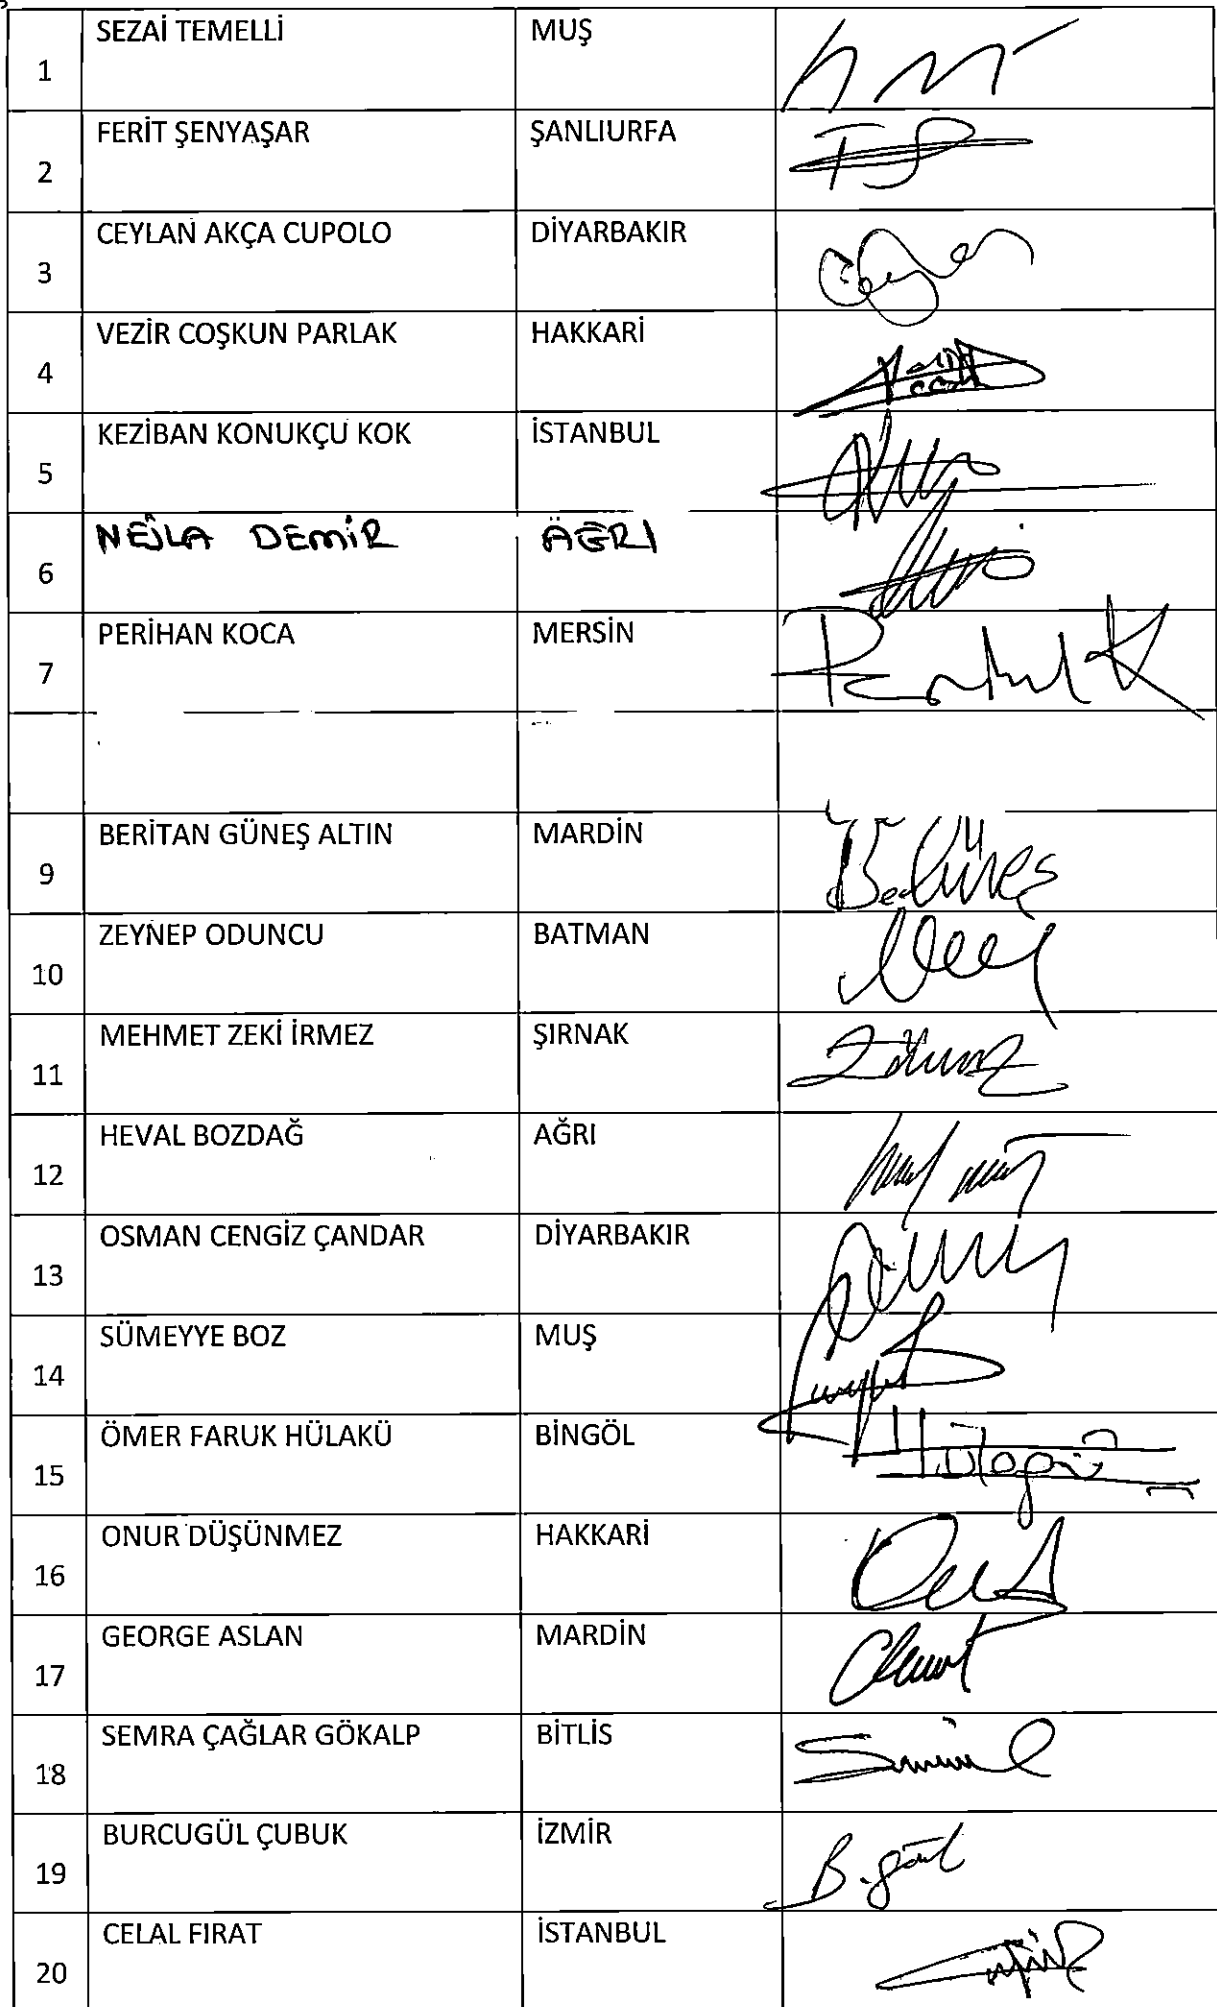 1 SEZAİ TEMELLİ MUŞ
2 FERİT ŞENYAŞAR ŞANLIURFA
3 CEYLAN AKÇA CUPOLO DİYARBAKIR
4 VEZİR COŞKUN PARLAK HAKKARİ
5 KEZİBAN KONUKÇU KOK İSTANBUL
6 NEJLA DEMİR AĞRI
7 PERİHAN KOCA MERSİN
9 BERİTAN GÜNEŞ ALTIN MARDİN
10 ZEYNEP ODUNCU BATMAN
11 MEHMET ZEKİ İRMEZ ŞIRNAK
12 HEVAL BOZDAĞ AĞRI
13 OSMAN CENGİZ ÇANDAR DİYARBAKIR
14 SÜMEYYE BOZ MUŞ
15 ÖMER FARUK HÜLAKÜ BİNGÖL
16 ONUR DÜŞÜNMEZ HAKKARİ
17 GEORGE ASLAN MARDİN
18 SEMRA ÇAĞLAR GÖKALP BİTLİS
19 BURCUGÜL ÇUBUK İZMİR B.gül
20 CELAL FIRAT İSTANBUL